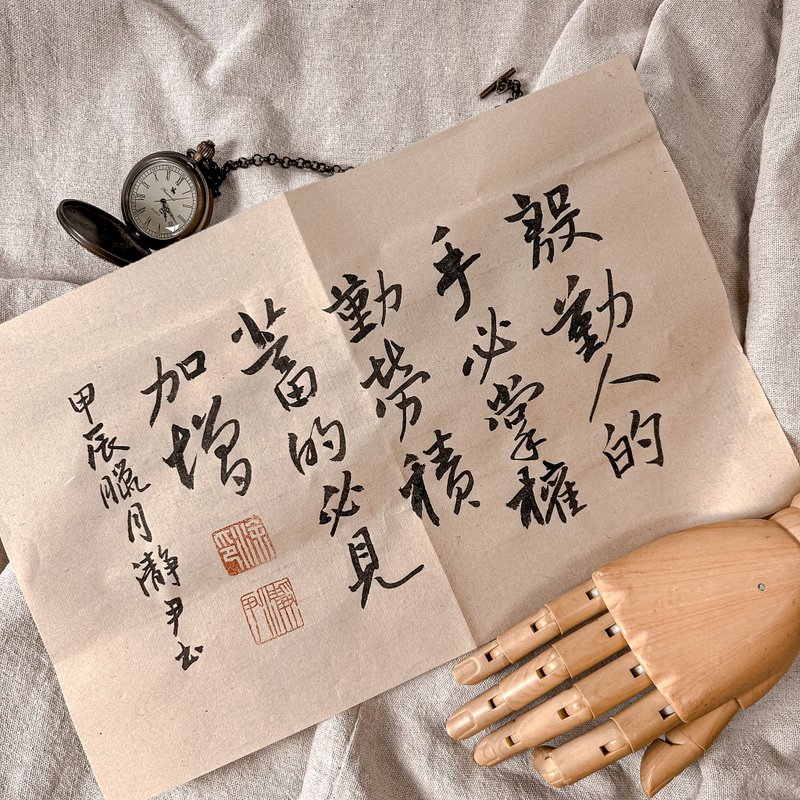 殷勤人的
手必掌權
勤勞積
蓄的必見
加增
甲辰臘月瀞尹書
瀞尹